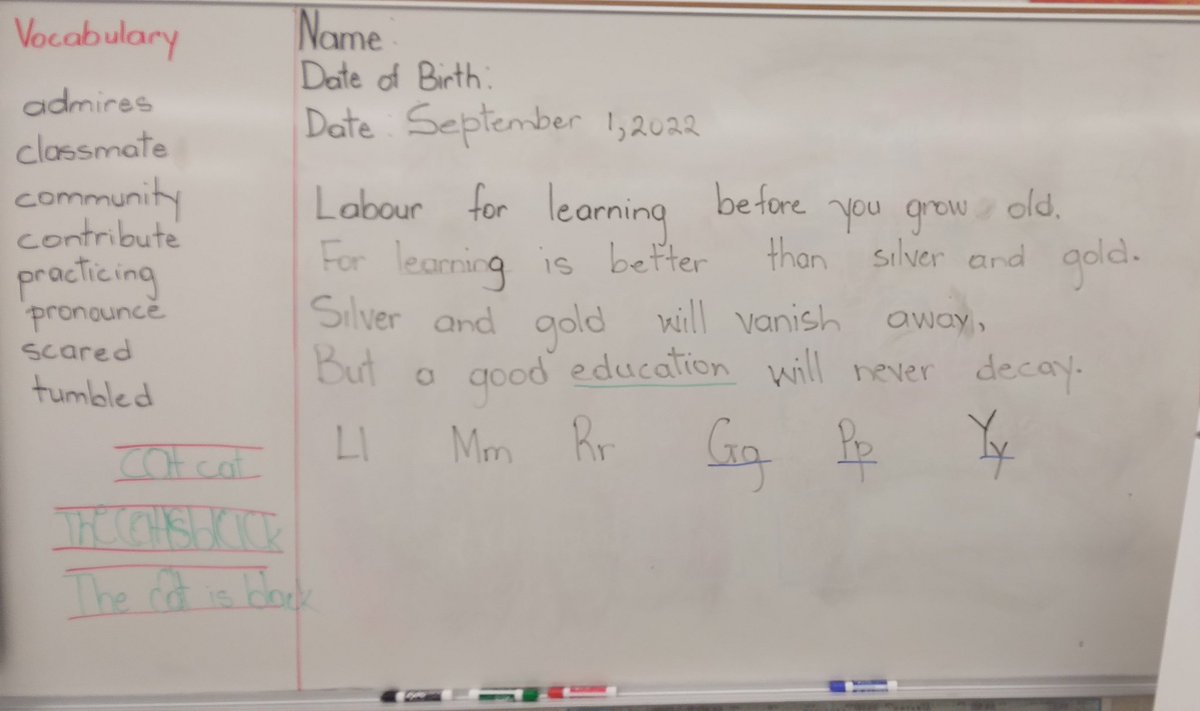 Vocabulary
admires
classmate
community
contribute
practicing
pronounce
scared
tumbled
cat cat
The cat is black
The cat is black
Name:
Date of Birth:
Date: September 1, 2022
Labour for learning before you grow old.
For learning is better than silver and gold.
Silver and gold will vanish away,
But a good education will never decay.
Ll Mm Rr Gg Pp Yy